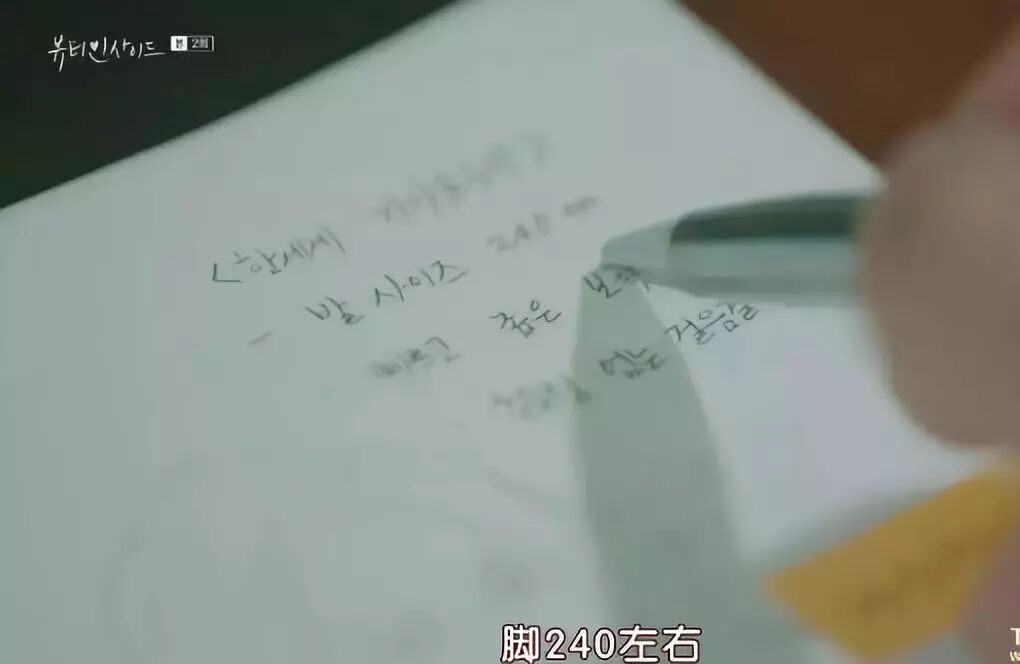 뷰티인사이드 2회
<한세계
- 발 사이즈 240 mm
빠르고 좁은 보폭
없는 걸음걸
脚240左右